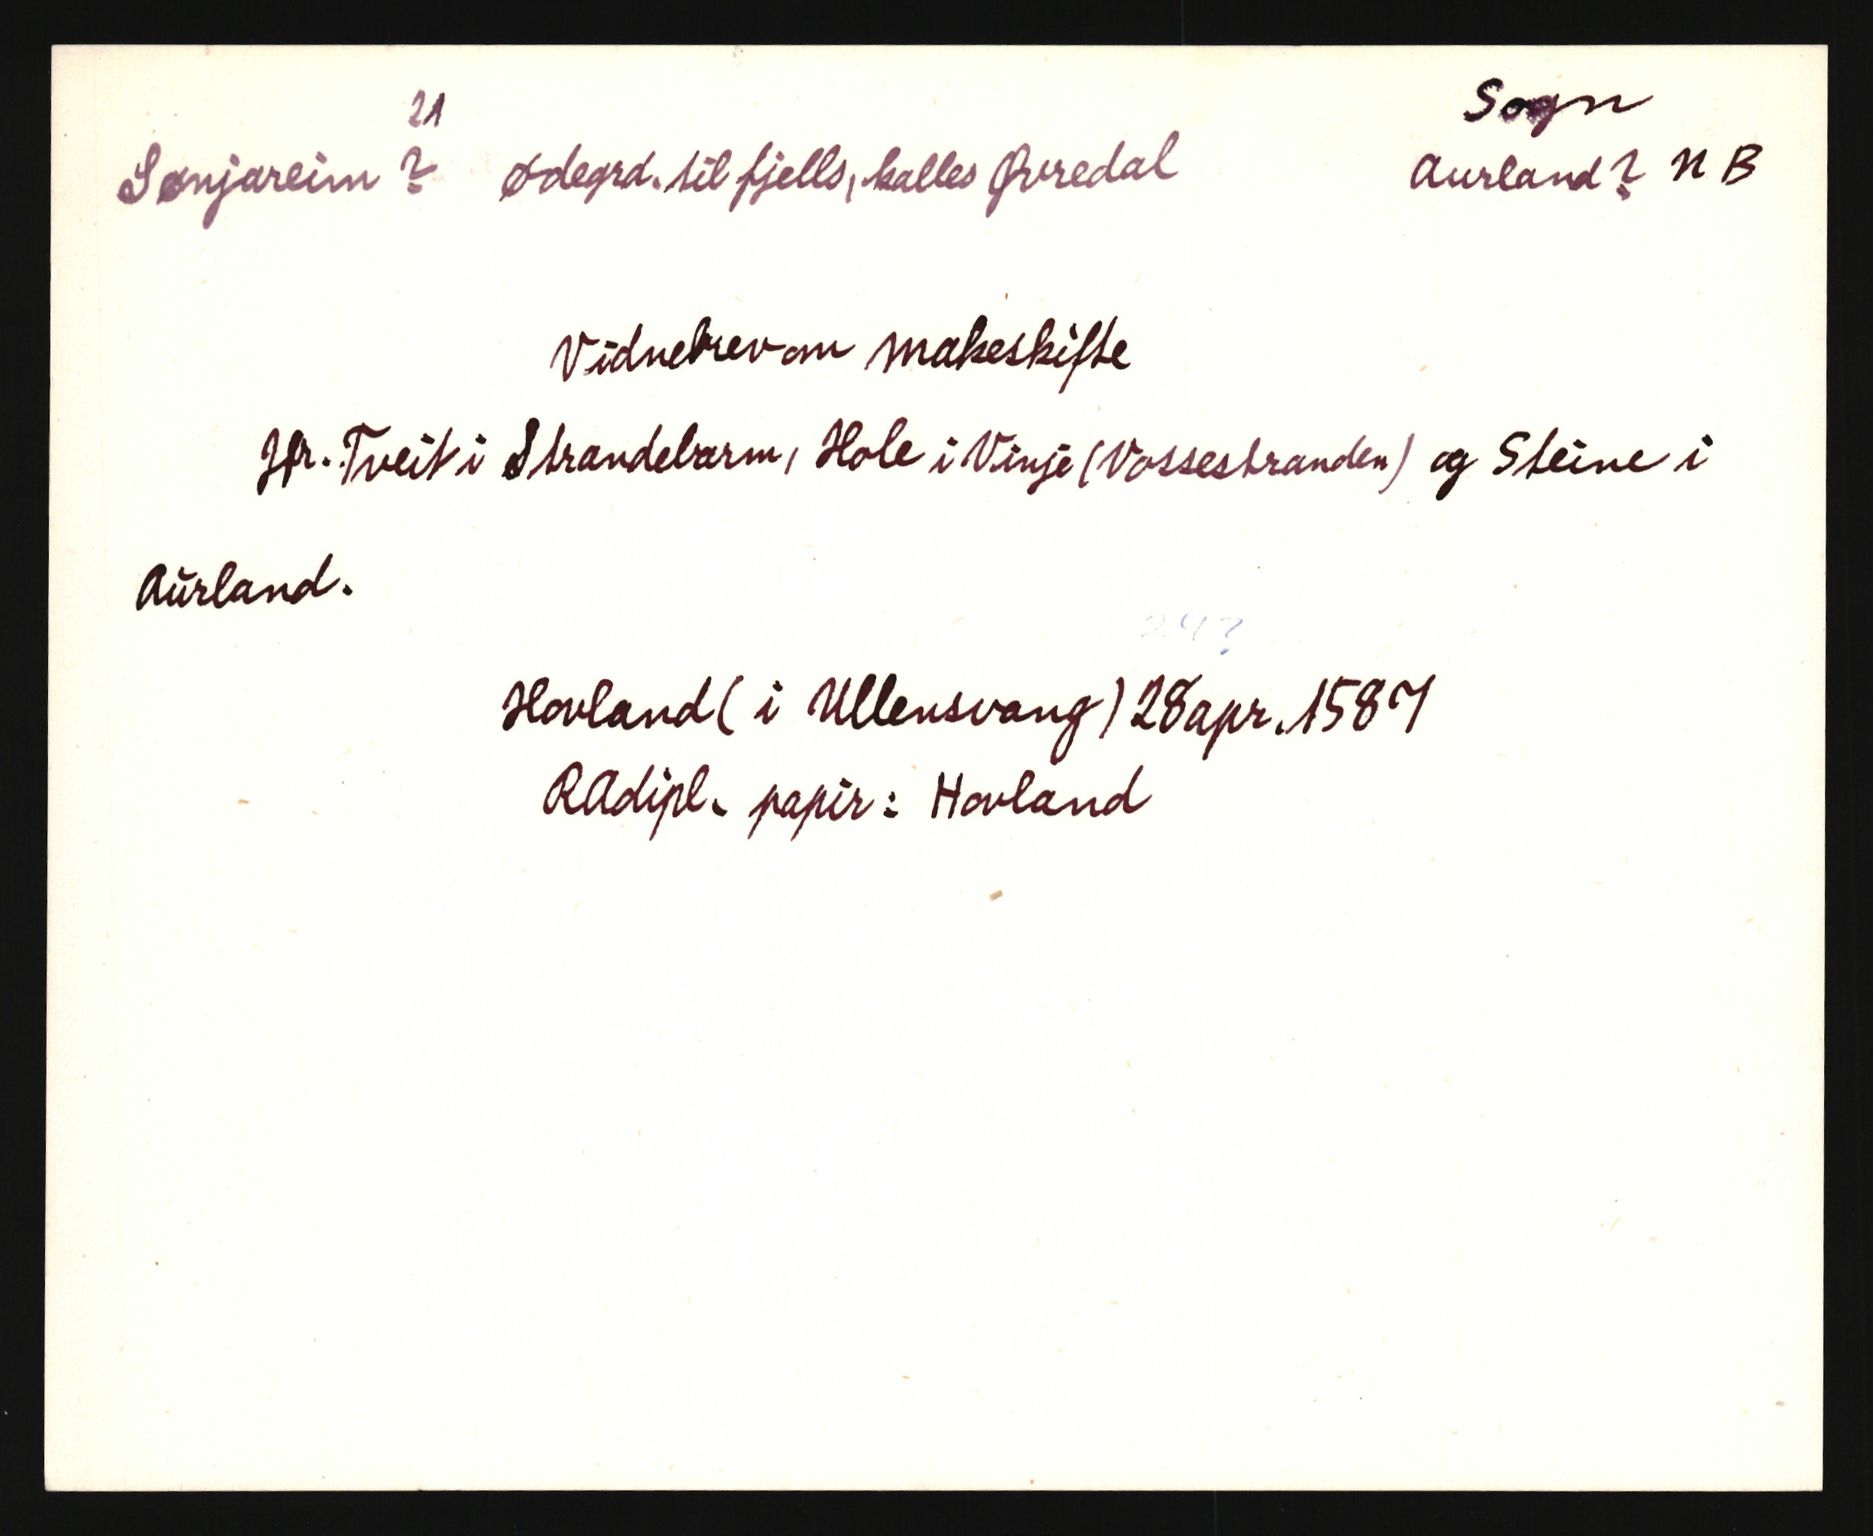 Sogn
21
Sønjareim ? Ødegrd. til fjells, kalles Øvredal Aurland? NB
Vidnebrev om makeskifte
Jfr. Tveit i Strandebarm, Hole i Vinje (Vossestranden) og Steine i
Aŭrland.
24?
Hovland ( i Ullensvang) 28 apr. 1587
RAdipl. papir: Hovland